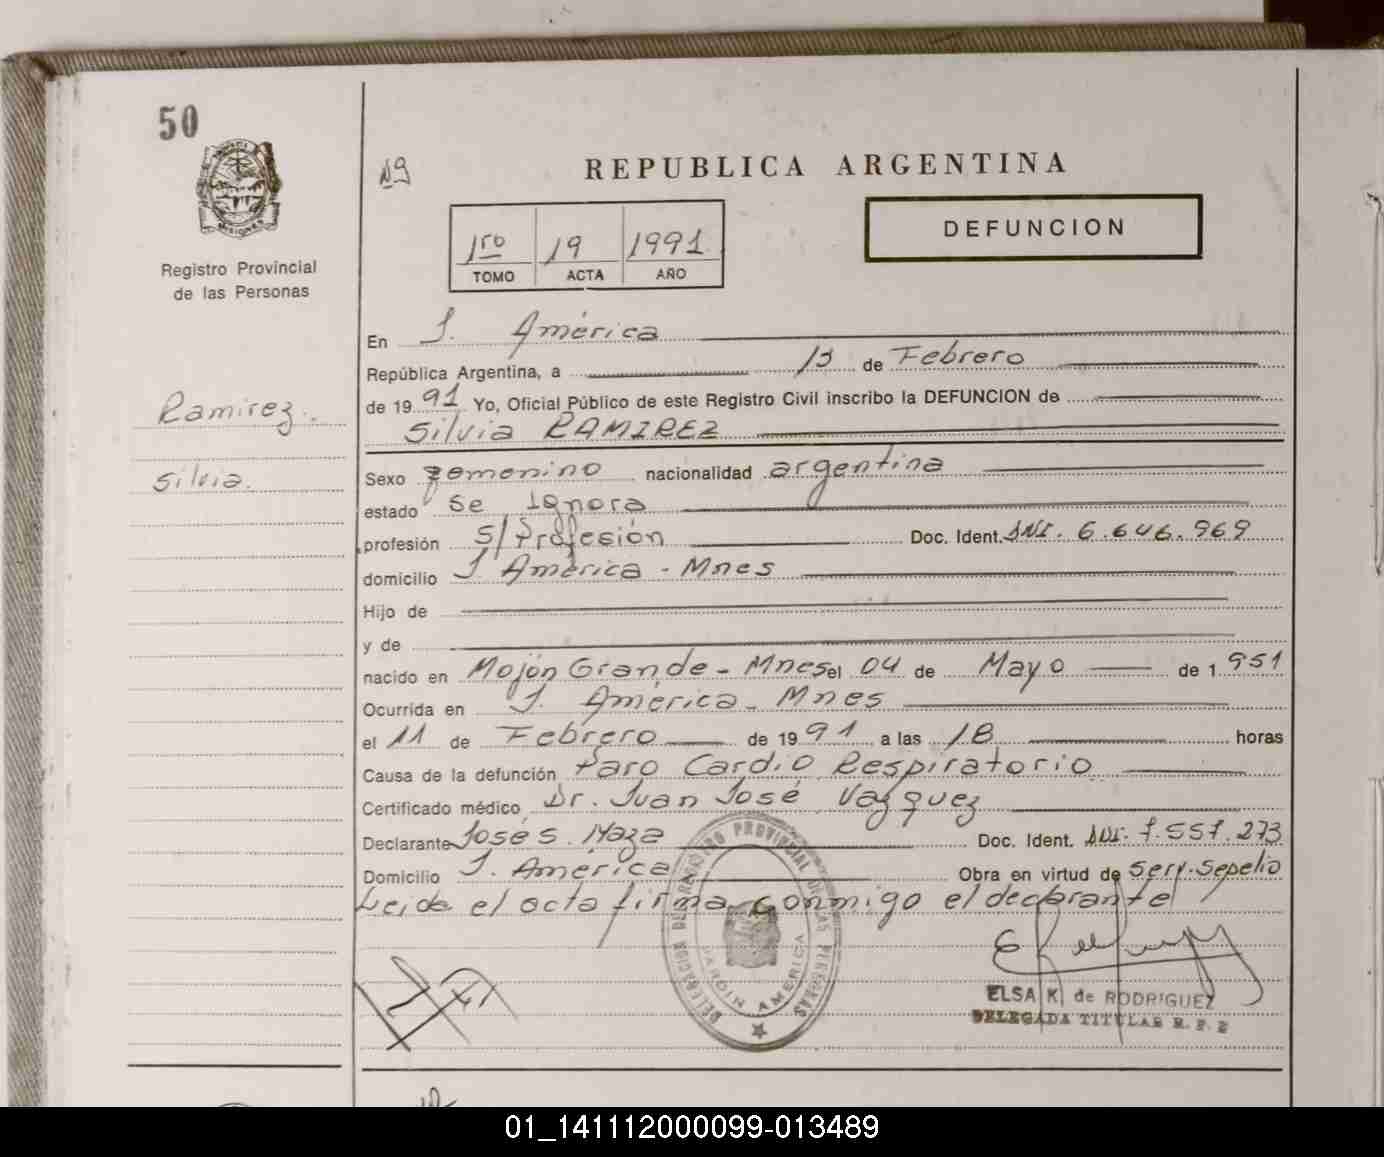 50
Registro Provincial
de las Personas
Ramirez.
Silvia.
19
REPUBLICA ARGENTINA
1ro 19 1991
TOMO ACTA AÑO
DEFUNCION
En J. América
República Argentina, a 13 de Febrero
de 19 91 Yo, Oficial Público de este Registro Civil inscribo la DEFUNCION de
Silvia RAMIREZ
Sexo femenino nacionalidad argentina
estado se Ignora
profesión S/Profesión Doc. Ident. DNI. 6.646.969
domicilio J. América - Mnes
Hijo de
y de
nacido en Mojón Grande - Mnes el 04 de Mayo de 1 951
Ocurrida en J. América - Mnes
el 11 de Febrero de 19 91 a las 18 horas
Causa de la defunción Paro Cardio Respiratorio
Certificado médico Dr. Juan José Vazquez
Declarante José S. Maza Doc. Ident. DNI. 7.557.273
Domicilio J. América Obra en virtud de Serv. Sepelio
Leida el acta firma conmigo el declarante
DELEGACION DEL REGISTRO PROVINCIAL DE LAS PERSONAS
JARDIN AMERICA
ELSA K. de RODRIGUEZ
DELEGADA TITULAR R. P. P
01_141112000099-013489